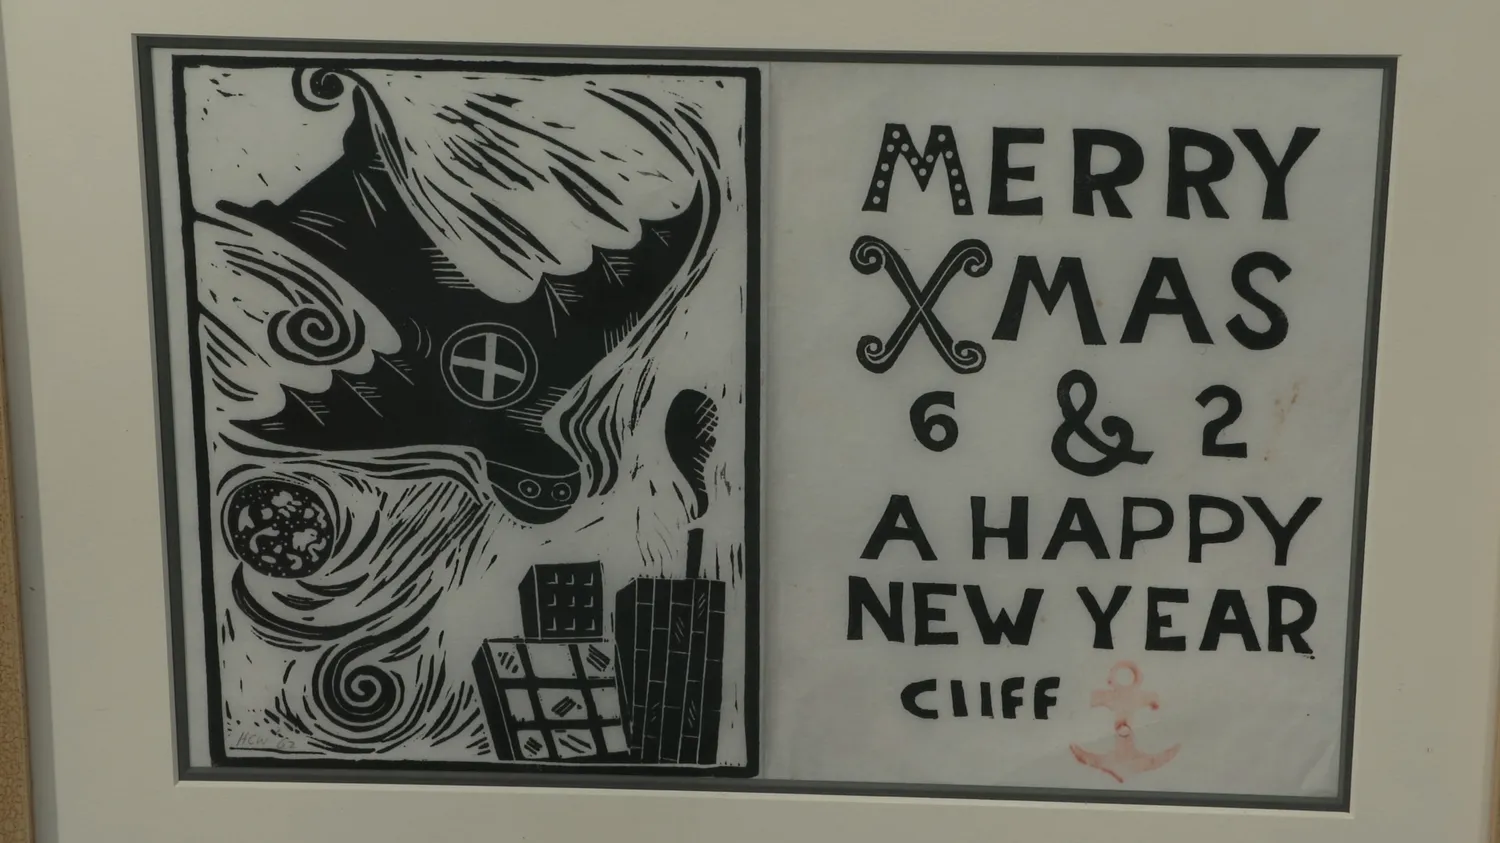 HCW 62
MERRY
XMAS
6 & 2
A HAPPY
NEW YEAR
CLIFF